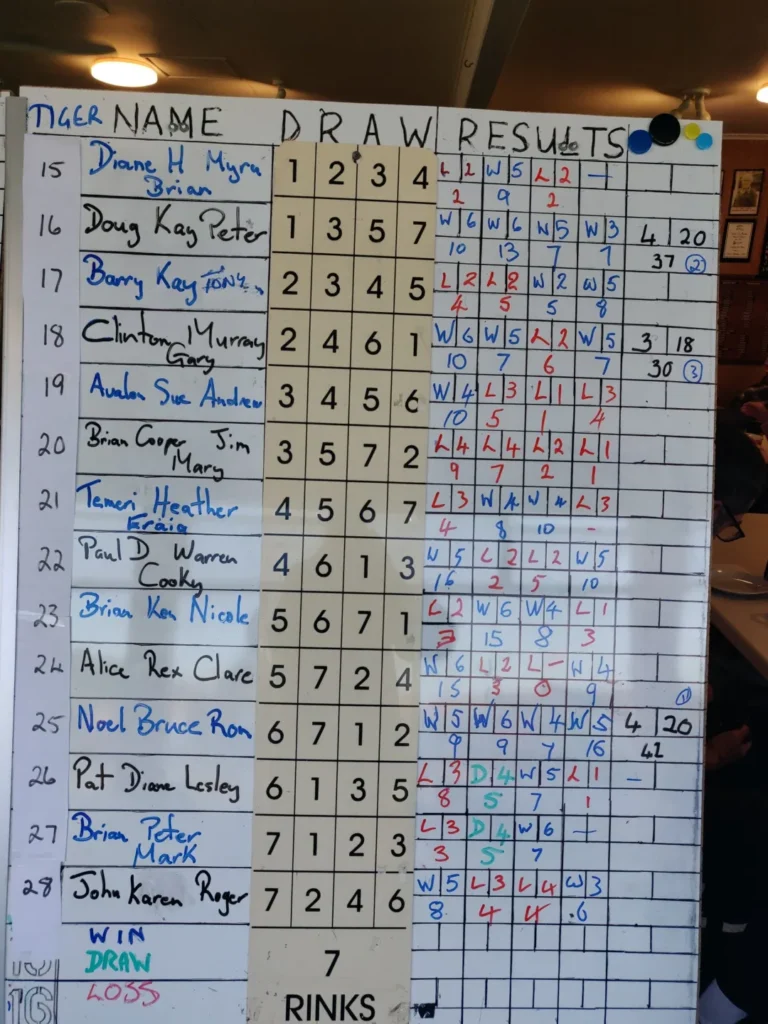 TIGER NAME DRAW RESULTS
15 Diane H Myra 1 2 3 4 L 2 W 5 L 2 –
Brian 2 9 2
16 Doug Kay Peter 1 3 5 7 W 6 W 6 W 5 W 3 4 20
10 13 7 7 37 2
17 Barry Kay TONY 2 3 4 5 L 2 L 2 W 2 W 5
4 5 5 8
18 Clinton Murray 2 4 6 1 W 6 W 5 L 2 W 5 3 18
Gary 10 7 6 7 30 3
19 Avalon Sue Andrew 3 4 5 6 W 4 L 3 L 1 L 3
10 5 1 4
20 Brian Cooper Jim 3 5 7 2 L 4 L 4 L 2 L 1
Mary 9 7 2 1
21 Temeri Heather 4 5 6 7 L 3 W 4 W 4 L 3
4 8 10 -
22 Paul D Warren 4 6 1 3 W 5 L 2 L 2 W 5
Cooky 16 2 5 10
23 Brian Ken Nicole 5 6 7 1 L 2 W 6 W 4 L 1
3 15 8 3
24 Alice Rex Clare 5 7 2 4 W 6 L 2 L – W 4
15 3 0 9 1
25 Noel Bruce Ron 6 7 1 2 W 5 W 6 W 4 W 5 4 20
9 9 7 16 42
26 Pat Diane Lesley 6 1 3 5 L 3 D 4 W 5 L 1 –
8 5 7 1
27 Brian Peter 7 1 2 3 L 3 D 4 W 6 –
Mark 3 5 7
28 John Karen Roger 7 2 4 6 W 5 L 3 L 4 W 3
8 4 4 .6
WIN
DRAW 7
LOSS RINKS
16